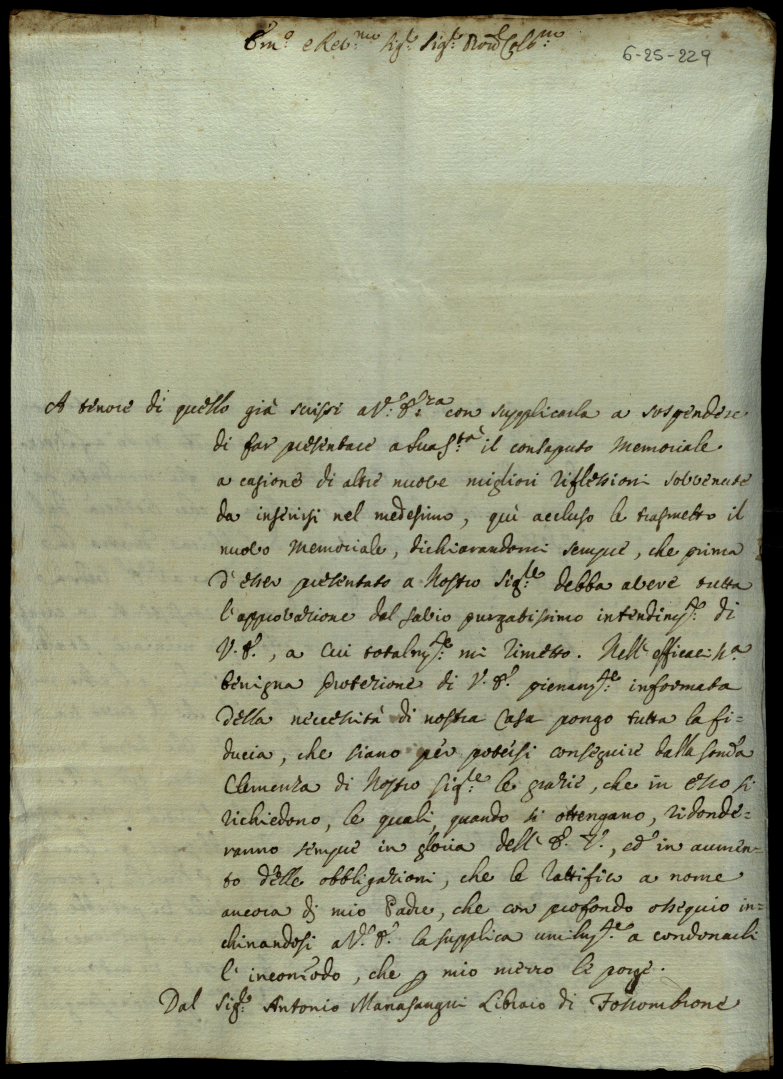 Em.º e Rev.mo Sig.e Sig.e Pron Col.mo
6-25-229
A tenore di quello già scrissi a V.ª E.za con supplicarla a sospendere
di far presentare a Sua S.tà il consaputo Memoriale
a cagione di altre nuove migliori riflessioni sovvenute
da inserirsi nel medesimo, quì accluso le trasmetto il
nuovo Memoriale, dichiarandomi sempre, che prima
d'esser presentato a Nostro Sig.re debba avere tutta
l'approvazione dal savio purgatissimo intendim.te di
V.ª E.ª, a cui totalm.te mi rimetto. Nell' efficaciss.ª
benigna protezione di V.ª E.ª pienam.te informata
della necessità di nostra Casa pongo tutta la fi=
ducia, che siano per potersi conseguire dalla somma
Clemenza di Nostro Sig.re le grazie, che in esso si
richiedono, le quali, quando si ottengano, ridonde=
ranno sempre in gloria dell' E.ª V.ª, ed in aumen=
to delle obbligazioni, che le rattifico a nome
ancora di mio Padre, che con profondo ossequio in=
chinandosi a V.ª E.ª la supplica umilm.te a condonarli
l'incommodo, che p mio mezzo le porge.
Dal Sig.e Antonio Manasangui Libraio di Fossombrone